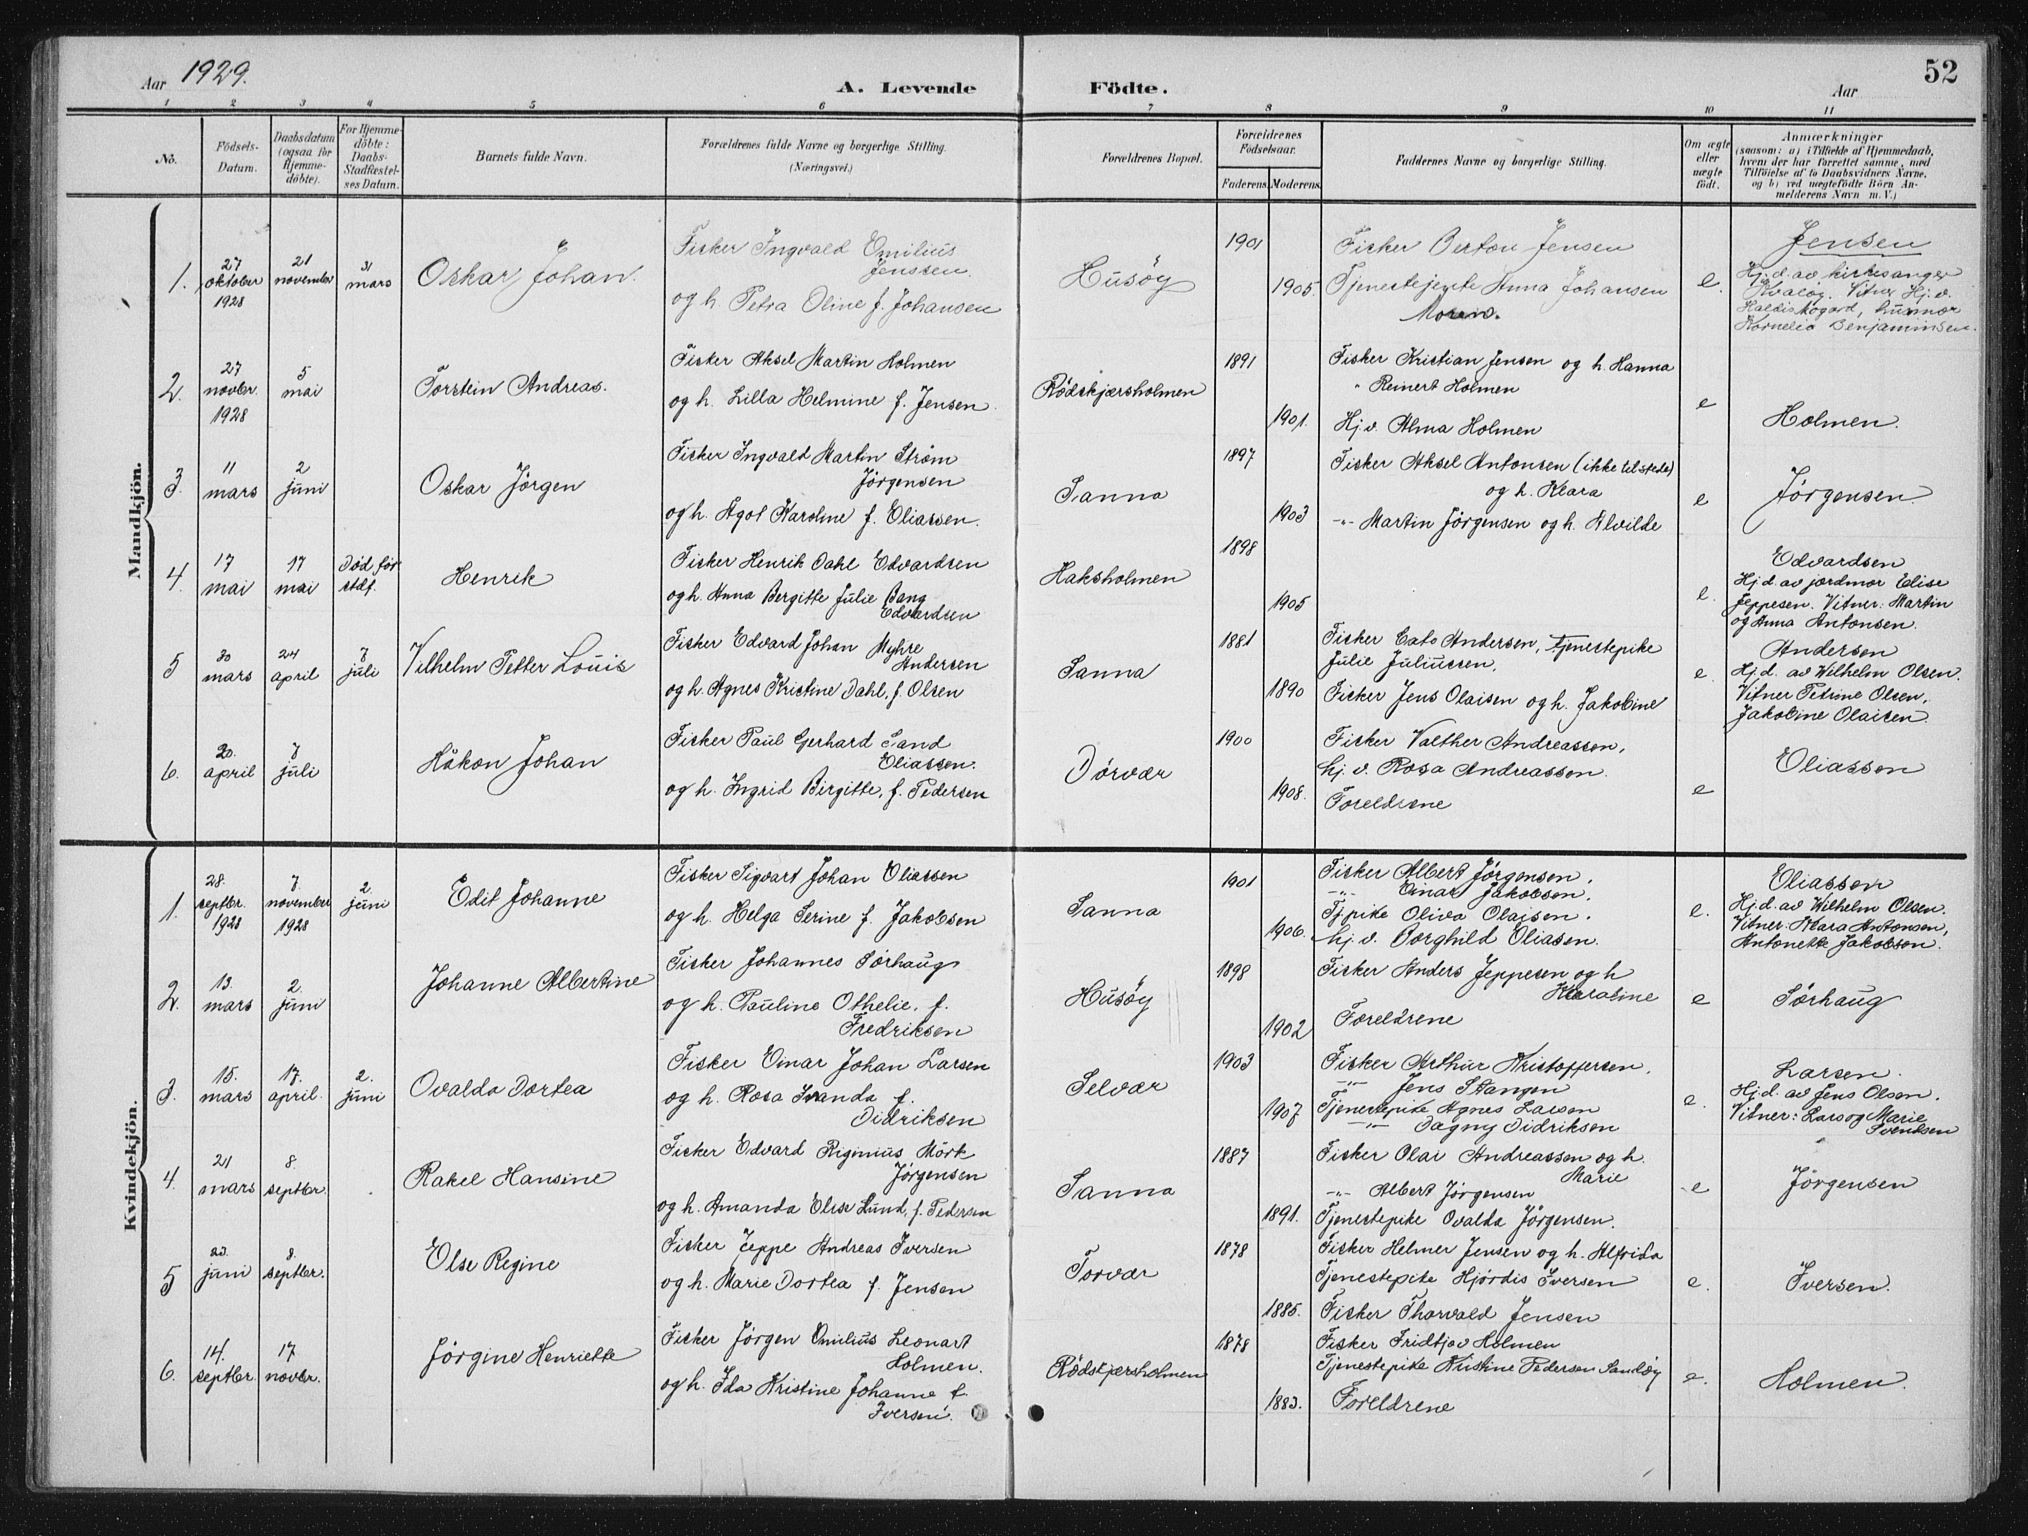 Aar 1929.
A. Levende Födte.
Aar
52
1 2 3 4 5 6 7 8 9 10 11
No.
Födsels-
Datum.
Daabsdatum
(ogsaa for
Hjemme-
döbte).
For Hjemme-
döbte:
Daabs-
Stadfæstel-
ses Datum.
Barnets fulde Navn.
Forældrenes fulde Navne og borgerlige Stilling.
(Næringsvei.)
Forældrenes Bopæl.
Forældrenes
Födselsaar.
Faderens. Moderens.
Faddernes Navne og borgerlige Stilling.
Om ægte
eller
uægte
födt.
Anmærkninger
(saasom: a) i Tilfælde af Hjemmedaab,
hvem der har forrettet samme, med
Tilföielse af to Daabsvidners Navne,
og b) ved uægtefödte Börn An-
melderens Navn m. V.)
Mandkjön.
1.
27
oktober
1928
21
november
31
mars
Oskar Johan.
Fisker Ingvald Emilius
Jensen
og h. Petra Oline f. Johansen
Husöy
1901
1905.
Fisker Berton Jensen
Tjenestejente Anna Johansen
Moren.
e.
Jensen
Hj.d. av kirkesanger
Kvalöy. Vitner Hj.v.
husmor
Kornelia Benjaminsen.
2.
27
novbr.
1928
5
mai
Torstein Andreas.
Fisker Aksel Martin Holmen
og h. Lilla Helmine f. Jensen.
Rödskjærsholmen
1891
1901.
Fisker Kristian Jensen og h. Hanna
" Reinert Holmen
Hj.v. Alma Holmen
e
Holmen.
3.
11
mars
2
juni
Oskar Jørgen
Fisker Ingvald Martin Strøm
Jørgensen
og h. Agot Karoline f. Eliassen.
Sanna
1897
1903
Fisker Aksel Antonsen (ikke tilstede)
og h. Klara
-"- Martin Jørgensen og h. Alvilde
e
Jørgensen
4.
17
mai
17
mai
Død før
stdf.
Henrik
Fisker Henrik Dahl Edvardsen
og h. Anna Bergitte Julie Bang
Edvardsen
Haksholmen
1898
1905
e.
Edvardsen
Hj.d. av jordmor Elise
Jeppesen. Vitner: Martin
og Anna Antonsen.
5
30
mars
24
april
7
juli
Vilhelm Petter Louis
Fisker Edvard Johan Myhre
Andersen
og h. Agnes Kristine Dahl, f. Olsen
Sanna
1881
1890
Fisker Cato Andersen, Tjenestepike
Julie Juliussen,
Fisker Jens Olaisen og h. Jakobine
e.
Andersen
Hj.d. av Wilhelm Olsen.
Vitner Petrine Olsen,
Jakobine Olaisen.
6.
20.
april
7
juli
Håkon Johan
Fisker Paul Gerhard Sand
Eliassen.
og h. Ingrid Birgitte, f. Pedersen
Dørvær
1900
1908.
Fisker Valther Andreassen,
hj.v. Rosa Andreassen.
Foreldrene
e
Eliassen
Kvindekjön.
1.
28.
septbr.
1928
7.
november
1928
2.
juni
Edit Johanne
Fisker Sigvart Johan Eliassen
og h. Helga Serine f. Jakobsen
Sanna
1901
1906.
Fisker Albert Jørgensen.
-"- Einar Jakobsen.
Tjpike Oliva Olaisen.
hj.v. Borghild Eliasen.
e.
Eliassen
Hj.d. av Wilhelm Olsen.
Vitner: Klara Antonsen,
Antonette Jakobsen.
2.
13.
mars
2.
juni
Johanne Albertine
Fisker Johannes Sørhaug
og h. Pauline Othelie, f.
Fredriksen
Husöy
1898
1902
Fisker Anders Jeppesen og h
Karoline
Foreldrene
e
Sørhaug
3.
15.
mars
17.
april.
2.
juni
Ovalda Dortea
Fisker Einar Johan Larsen
og h. Rosa Ivanda f.
Didriksen
Selvær
1903
1907
Fisker Arthur Kristoffersen.
-"- Jens Stangen
Tjenestepike Agnes Larsen
-"- Dagny Didriksen
e.
Larsen.
Hj.d. av Jens Olsen.
Vitner: Lars og Marie
Svendsen
4.
21
mars
8.
septbr.
Rakel Hansine
Fisker Edvard Riginius Mörk
Jørgensen
og h. Amanda Elise Lund, f. Pedersen
Sanna
1887
1891.
Fisker Olai Andreassen og h.
Marie
-"- Albert Jørgensen
Tjenestepike Ovalda Jørgensen.
e
Jørgensen
5
23.
juni
8.
septbr.
Else Regine
Fisker Jeppe Andreas Iversen
og h. Marie Dortea f. Jensen
Torvær
1878
1885.
Fisker Helmer Jensen og h. Alfrida
Tjenestepike Hjördis Iversen
Fisker Thorvald Jensen
e.
Iversen.
6.
14.
septbr.
17
novbr.
Jørgine Henriette
Fisker Jørgen Emilius Leonart
Holmen.
og h. Ida Kristine Johanne f.
Iversen.
Rödskjersholmen
1878
1883.
Fisker Fridtjov Holmen
Tjenestepike Kristine Pedersen Sandöy
Foreldrene
e.
Holmen.